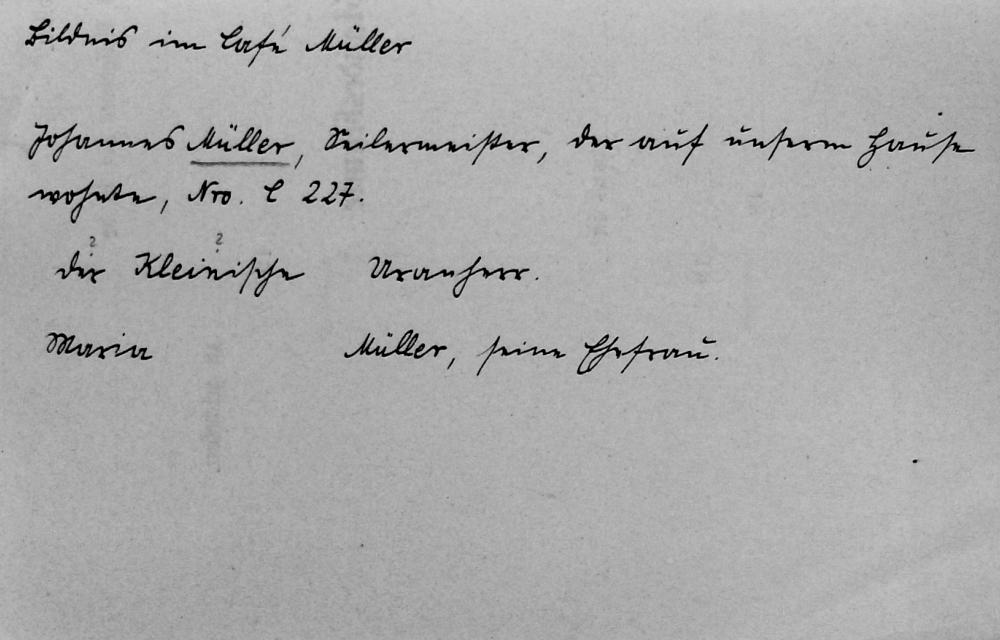 Bildnis im Café Müller
Johannes Müller, Seilermeister, der auf unserm Hause
wohnte, Nro. C 227.
? ?
der Kleinische Uranherr.
Maria Müller, seine Ehefrau.